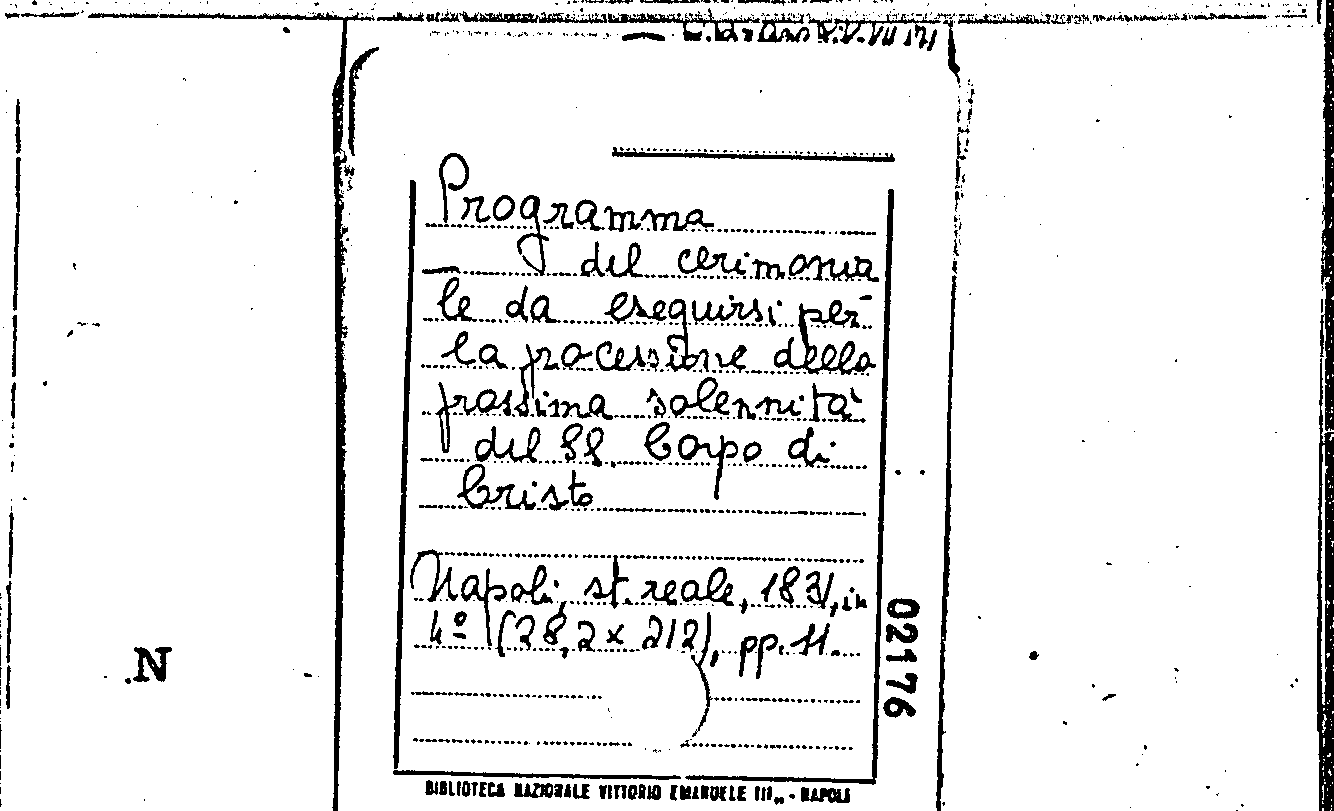 Programma
del cerimonia
le da eseguirsi per
la processione della
prossima solennità
del SS. Corpo di
Cristo
Napoli, st. reale, 1831, in
4º (28,2 x 212), pp. 11.
02176
N
BIBLIOTECA NAZIONALE VITTORIO EMANUELE III„ - NAPOLI